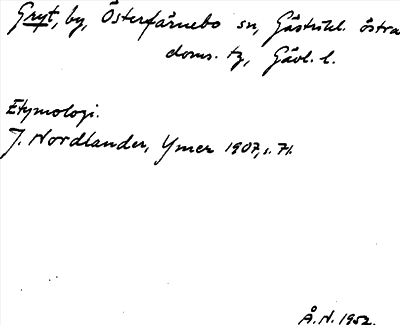 Gryt, by, Österfärnebo sn, Gästrikl. östra
doms. tg, Gävl. l.
Etymologi.
J. Nordlander, Ymer 1907, s. 71.
Å.N. 1952.